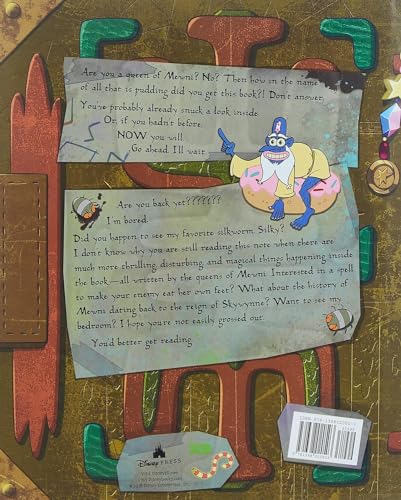 Are you a queen of Mewni? No? Then how in the name
of all that is pudding did you get this book?! Don't answer.
You've probably already snuck a look inside.
Or, if you hadn't before,
NOW you will.
Go ahead. I'll wait.
Are you back yet???????
I'm bored.
Did you happen to see my favorite silkworm, Silky?
I don't know why you are still reading this note when there are
much more thrilling, disturbing, and magical things happening inside
the book—all written by the queens of Mewni. Interested in a spell
to make your enemy eat her own feet? What about the history of
Mewni dating back to the reign of Skywynne? Want to see my
bedroom? I hope you're not easily grossed out.
You'd better get reading.
Disney PRESS